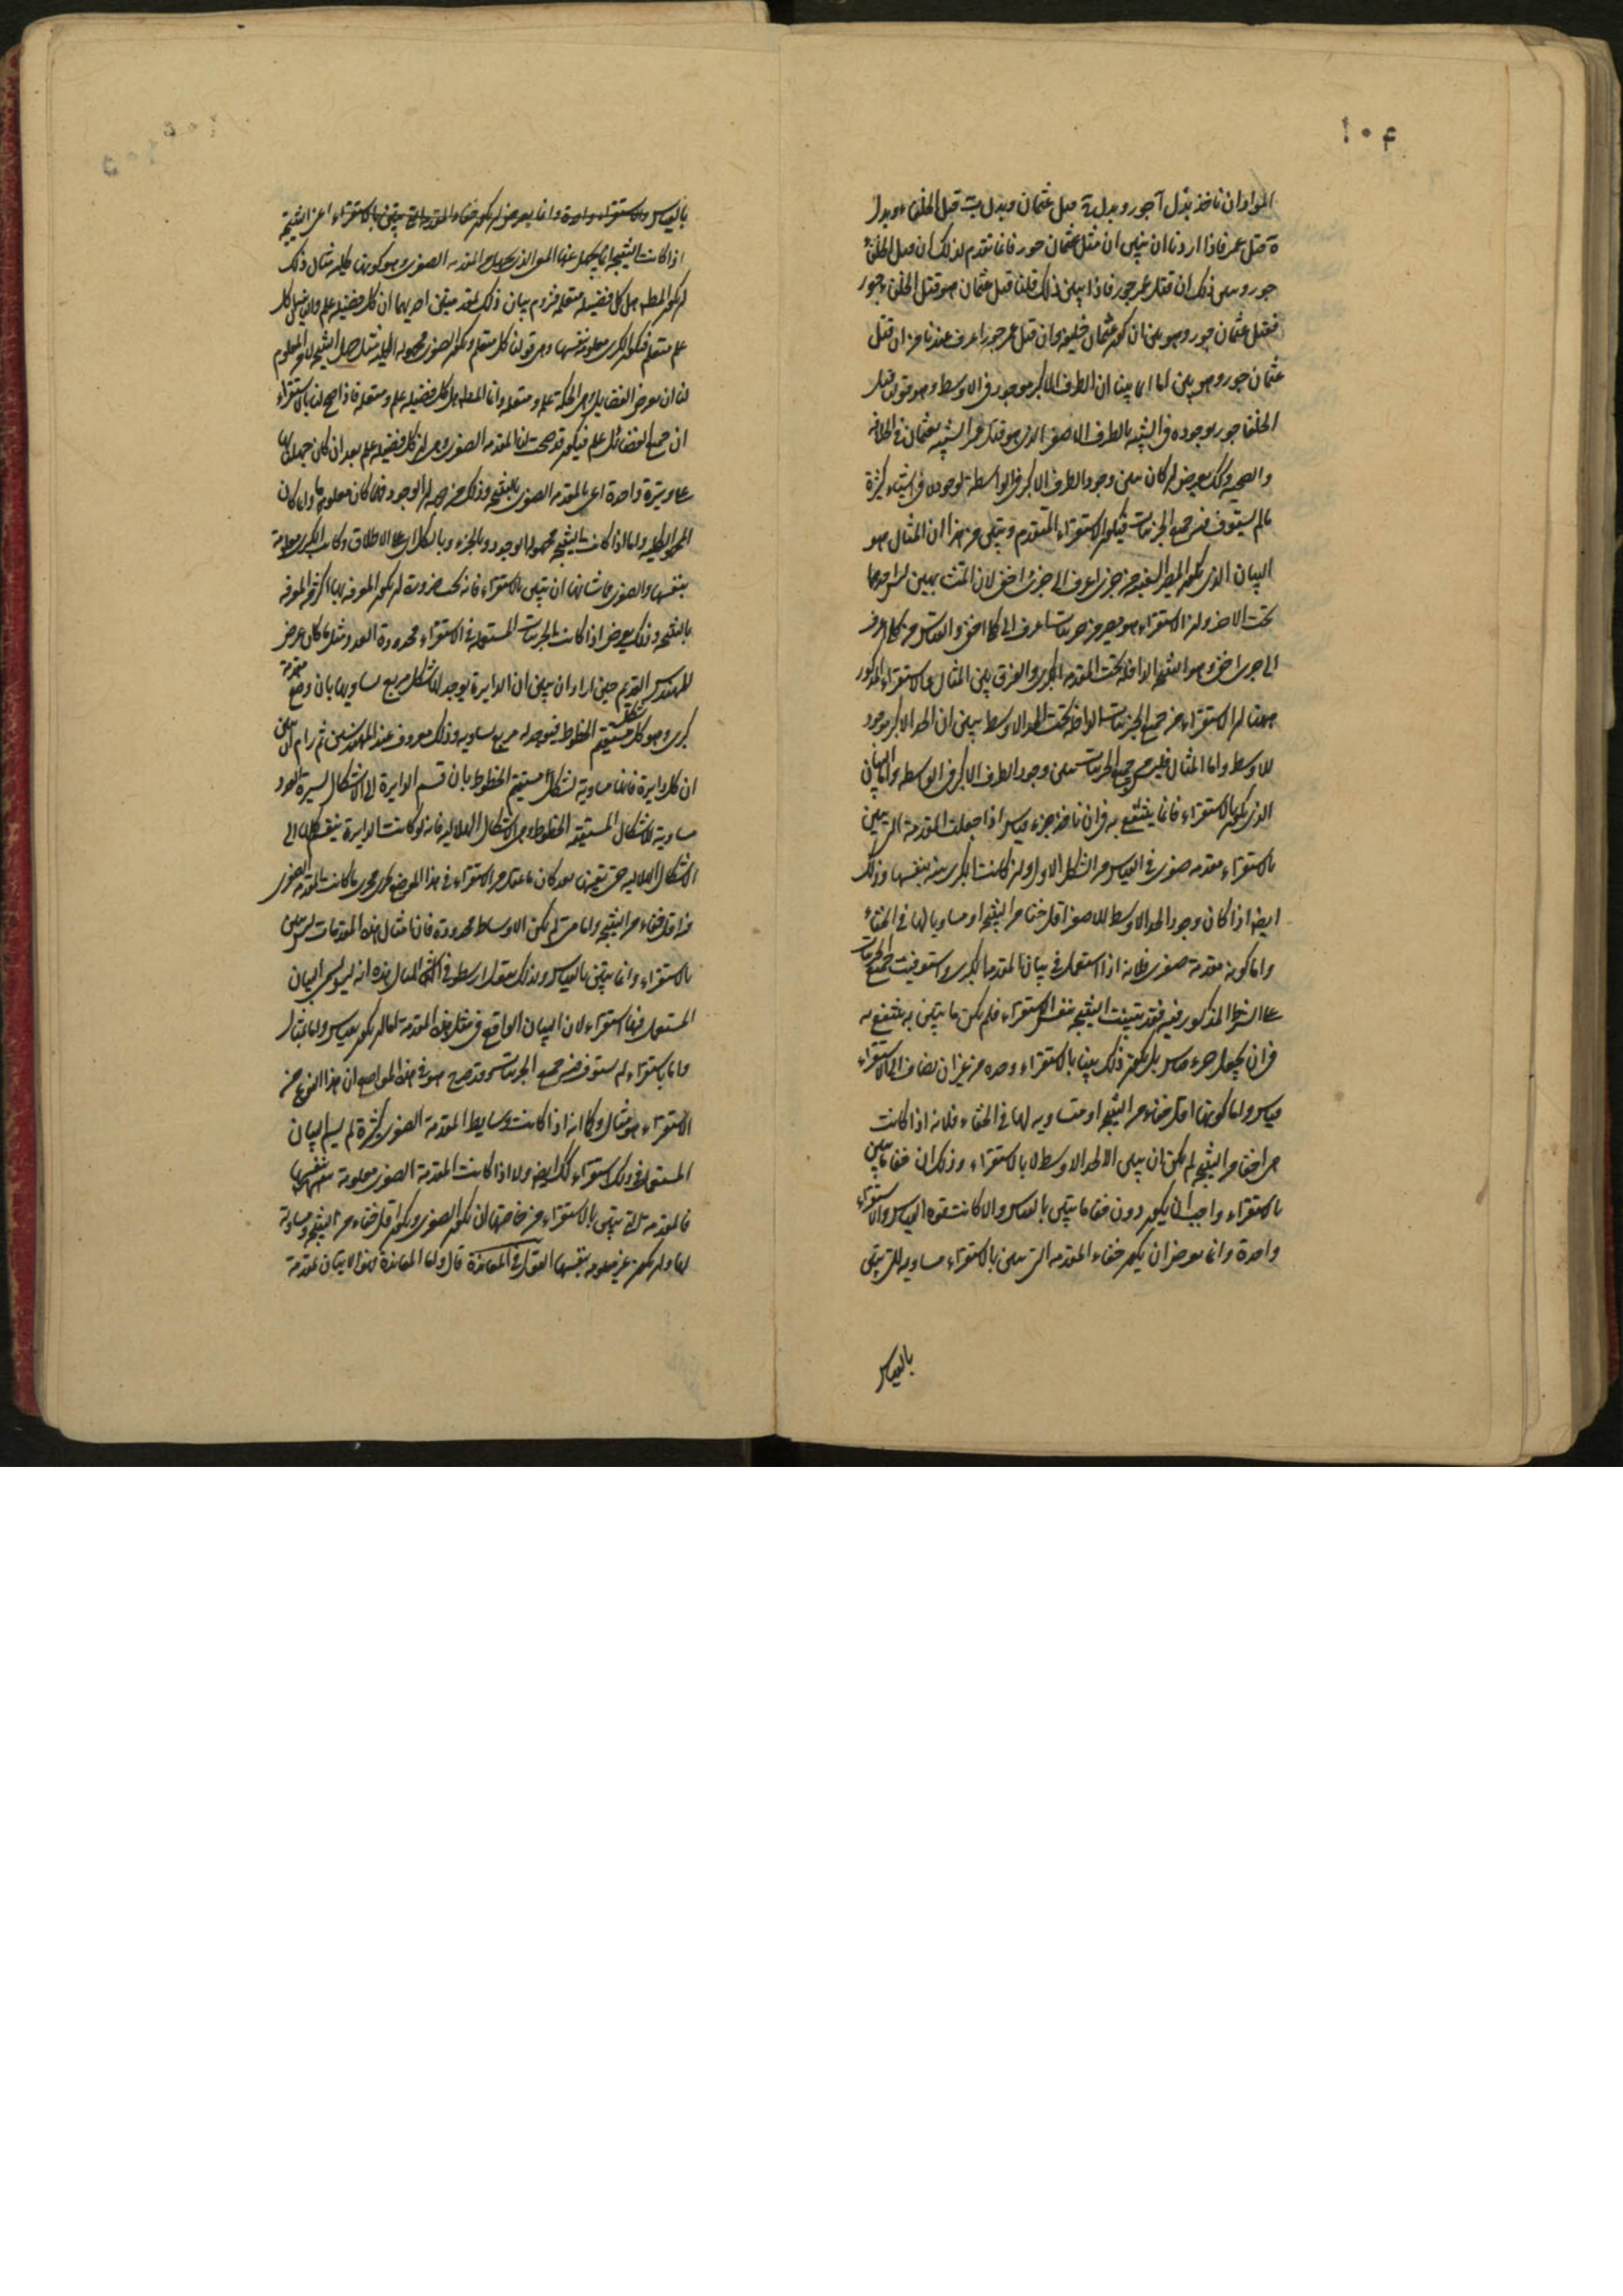 ١٠٤
المواد ان ناخذ بدل آ جور وبدل ة قبل عثمان وبدل ب قتل الخلفاء وبدل
ة قتل عمر فاذا اردنا ان نبين ان قتل عثمان جور فانا نقدم لذلك ان قتل الخلفاء
جور وبين ذلك ان قتل عمر جور فاذا تبين ذلك قلنا قتل عثمان هو قتل الخلفاء جور
فقتل عثمان جور وهو بين ان يكون عثمان خليفة وان قتل عمر جور اعرف عندنا من ان قتل
عثمان جور وهو بين انا انما بينا ان الطرف الاكبر موجود في الاوسط وهو قولنا قتل
الخلفا جور بوجوده في الشبيه بالطرف الاصغر الذي هو قتل عمر الشبيه بعثمان في الخلافة
والصحبة وكذلك يعرض لو كان تبين وجود الطرف الاكبر في الواسطة لوجوده في اشياء كثيرة
ما لم يستوف فيه جميع الجزئيات فيكون الاستقراء المتقدم وتبين من هذا ان المثال هو
البيان الذي يكون المصير فيه من جزئي اعرف الى جزئي اخفى لان المتشابهين ليس احدهما
تحت الاخر وان الاستقراء هو مصير من جزئيات اعرف الى كلي اخفى والقياس من كلي اعرف
الى جزئي اخفى وهو النتيجة الداخلة تحت المقدمة الكبرى والفرق بين المثال والاستقراء المذكور
ههنا ان الاستقراء من جميع الجزئيات الداخلة تحت الحد الاوسط يبين ان الحد الاكبر موجود
للاوسط واما المثال فليس من جميع الجزئيات يبين وجود الطرف الاكبر في الواسطة واما البيان
الذي يكون بالاستقراء فانما ينتفع به في ان ناخذ جزء قياس اذا جعلت المقدمة التي تبين
بالاستقراء مقدمة صغرى في القياس من الشكل الاول وان كانت الكبرى بينة بنفسها وذلك
ايضا اذا كان وجود الحد الاوسط للاصغر اقل خفا من النتيجة او مساويا لها في الخفاء
واما كونه مقدمة صغرى فلانه اذا استعمل في بيان المقدمة الكبرى واستوفيت جميع الجزئيات
على الشرط المذكور فيه فقد تبينت النتيجة بنفس الاستقراء فلم يكن ما يتبين به ينتفع به
في ان يجعل جزء قياس بل يكون ذلك بينا بالاستقراء وحده من غير ان يضاف الى الاستقراء
قياس واما كونها اقل خفاء من النتيجة او متساوية لها في الخفاء فلانه اذا كانت
هي اخفا من النتيجة لم يمكن ان يبين الا الحد الاوسط لا بالاستقراء وذلك ان خفا ما يبين
بالاستقراء واجب ان يكون دون خفا ما يتبين بالقياس والا كانت قوة القياس والاستقراء
واحدة وانما يعرض ان يكون خفاء المقدمة التي تبين بالاستقراء مساويه للتي تبين
بالقياس
١٠٥
بالقياس والاستقراء واحدة وانما يعرض ان يكون خفاء المقدمة التي تبين بالاستقراء اعني النتيجة
اذا كانت النتيجة انما يجهل منها النحو الذي يجهل من المقدمة الصغرى وهو كونها كلية مثال ذلك
ان يكون المطلوب هل كل فضيلة متعلمة فنروم بيان ذلك بمقدمتين احديهما ان كل فضيلة علم والاخرى كل
علم متعلم فتكون الكبرى معلومة بنفسها وهي قولنا كل متعلم وتكون الصغرى مجهولة الكلية مثل جهل النتيجة لانه المعلوم
لنا ان بعض الفضايل وهي الحكمة علم ومتعلمة وانما المطلوب هل كل فضيلة علم ومتعلمة فاذا صح لنا بالاستقراء
ان جميع الفضائل علم فيكون قد صحت لنا المقدمة الصغرى وهي ان كل فضيلة علم بعد ان كان جهلنا بها
على وتيرة واحدة اعني بالمقدمة الصغرى بالنتيجة وذلك من جهة ان الوجود فيهما كان معلوما وانما كان
المجهول الكلية واما اذا كانت النتيجة مجهولة الوجود وبالجزء وبالكل اي على الاطلاق وكانت الكبرى معلومة
بنفسها والصغرى فما شانها ان تبين بالاستقراء فانه تحت ضرورة ان يكون المعرفة بها اكثر من المعرفة
بالنتيجة وذلك يعرض اذا كانت الجزئيات المستعملة في الاستقراء محدودة العدد مثل ما كان عرض
للمهندس القديم حين اراد ان يبين ان الدايرة يوجد لها شكل مربع يساويها بان وضع مقدمة
كبرى وهو كل شكل مستقيم الخطوط فيوجد له مربع يساويه وذلك معروف عند المهندسين ثم رام ان يبين
ان كل دايرة فانها مساوية لشكل مستقيم الخطوط بان قسم الدايرة الى اشكال يسيرة العدد
مساوية لاشكال المستقيمة الخطوط وهي الاشكال الهلالية فانه لو كانت الدايرة ينقسم كلها الى
الاشكال الهلالية حتى تفنيها لقد كان ما عمله من الاستقراء في هذا الموضع يجري مجرى ما كانت المقدمة الصغرى
فيه اقل خفاء من النتيجة واما متى لم يكن الاوساط محدودة فان امثال هذه المقدمات ليس تبين
بالاستقراء وانما يتبين بالقياس ولذلك يقول ارسطو في امثال هذه انه ليس يسمى البيان
المستعمل فيها استقراء لان البيان الواقع في مثل هذه المقدمة اما ان يكون بقياس واما بمثال
واما باستقراء لم يستوف فيه جميع الجزئيات وقد صرح هو في هذه المواضع ان هذا النوع من
الاستقراء هو مثال وكما انه اذا كانت وسايط المقدمة الصغرى كثيرة لم يسم البيان
المستعمل في ذلك استقراء كذلك ايضا ولا اذا كانت المقدمة الصغرى معلومة بنفسها
فالمقدمة التي تبين بالاستقراء من خاصتها ان تكون الصغرى وتكون اقل خفاء من النتيجة او مساوية
لها وان يكون غير معلومة بنفسها القول في المعاندة قال واما المعاندة فهو الاتيان بمقدمة